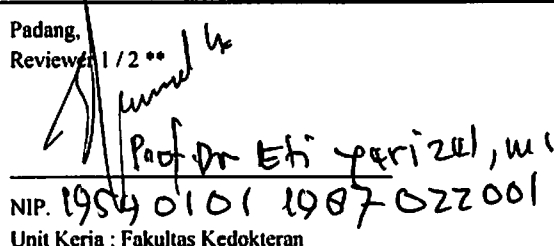 Padang,
Reviewer 1 / 2 **
Prof Dr Eti
NIP. 19540101 1987 022001
Unit Kerja : Fakultas Kedokteran